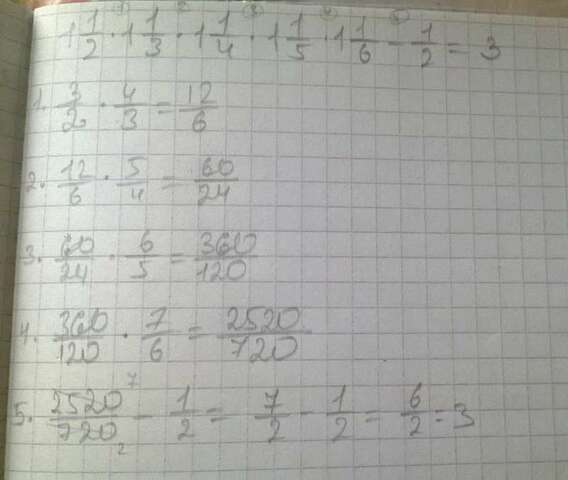 1 1/2 · 1 1/3 · 1 1/4 · 1 1/5 · 1 1/6 - 1/2 = 3
1. 3/2 · 4/3 = 12/6
2. 12/6 · 5/4 = 60/24
3. 60/24 · 6/5 = 360/120
4. 360/120 · 7/6 = 2520/720
5. 2520/720 7 2 - 1/2 = 7/2 - 1/2 = 6/2 = 3